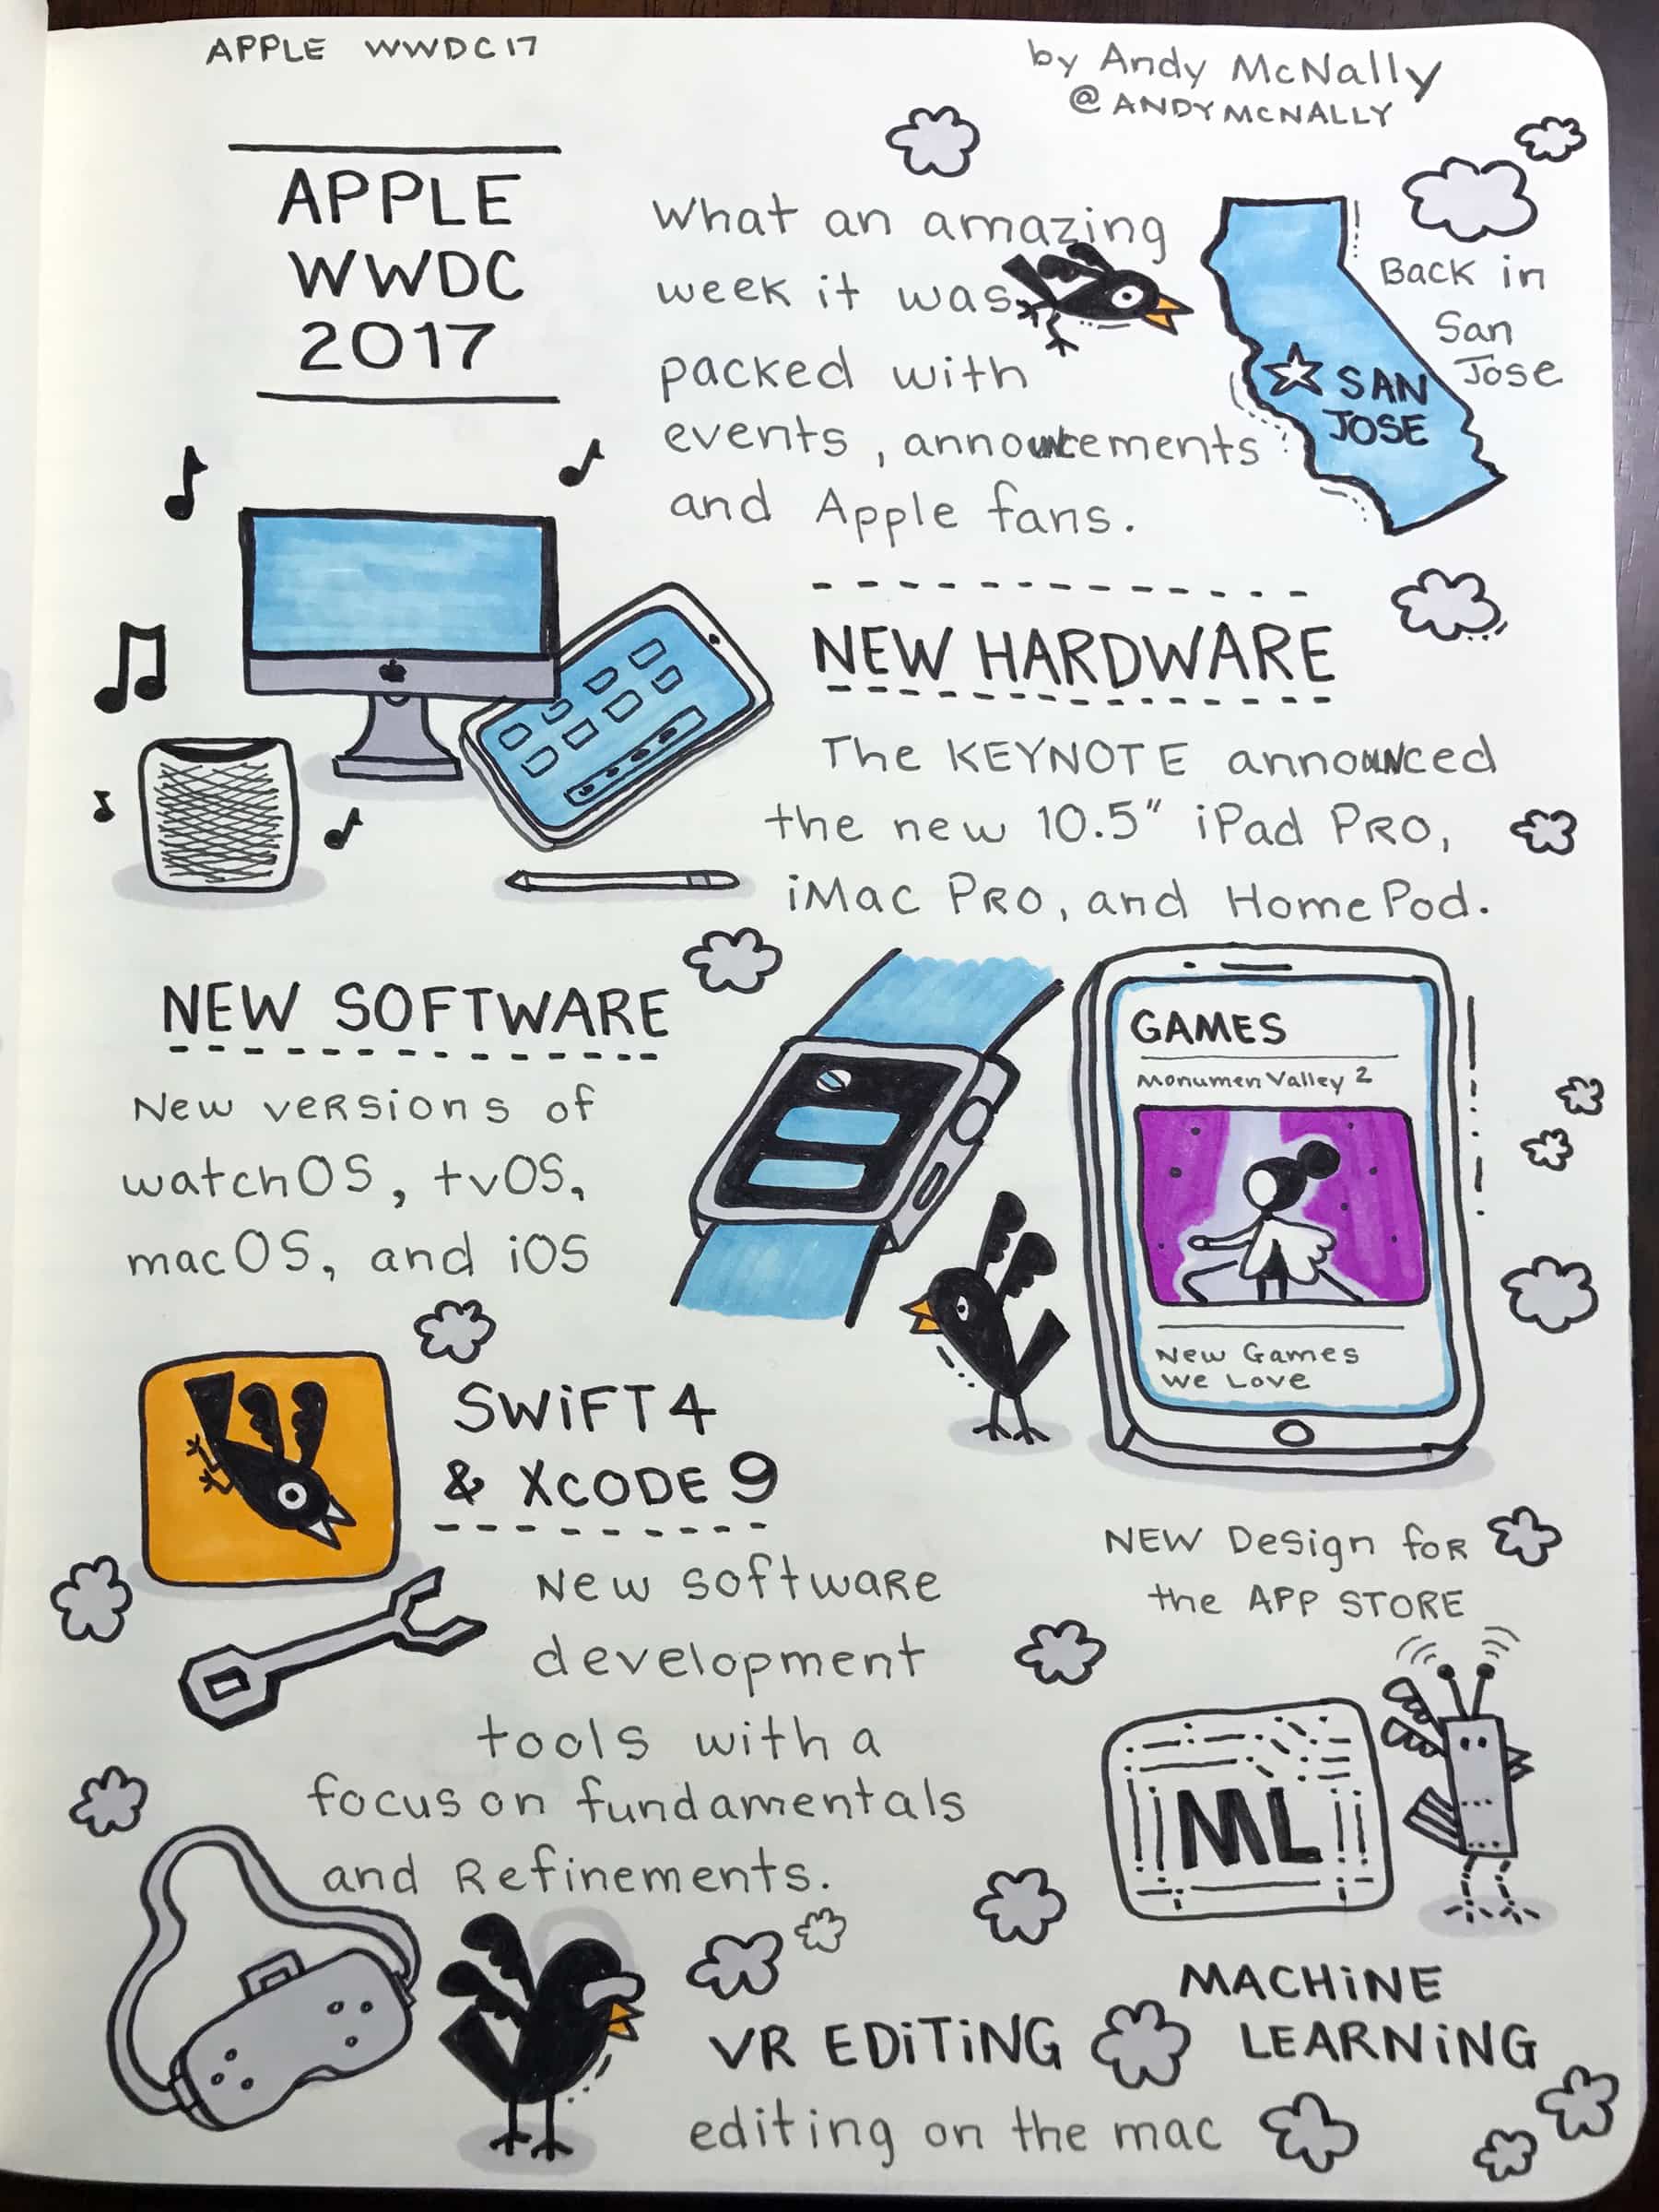 APPLE WWDC17
by Andy McNally
@ANDYMCNALLY
APPLE
WWDC
2017
What an amazing
week it was
packed with
events, announcements
and Apple fans.
Back in
San
Jose
SAN
JOSE
NEW HARDWARE
The KEYNOTE announced
the new 10.5" iPad PRO,
iMac PRO, and HomePod.
NEW SOFTWARE
New versions of
watchOS, tvOS,
macOS, and iOS
GAMES
Monumen Valley 2
New Games
We Love
SWiFT 4
& XCODE 9
New software
development
tools with a
focus on fundamentals
and Refinements.
NEW Design for
the APP STORE
ML
MACHiNE
LEARNiNG
VR EDiTiNG
editing on the mac